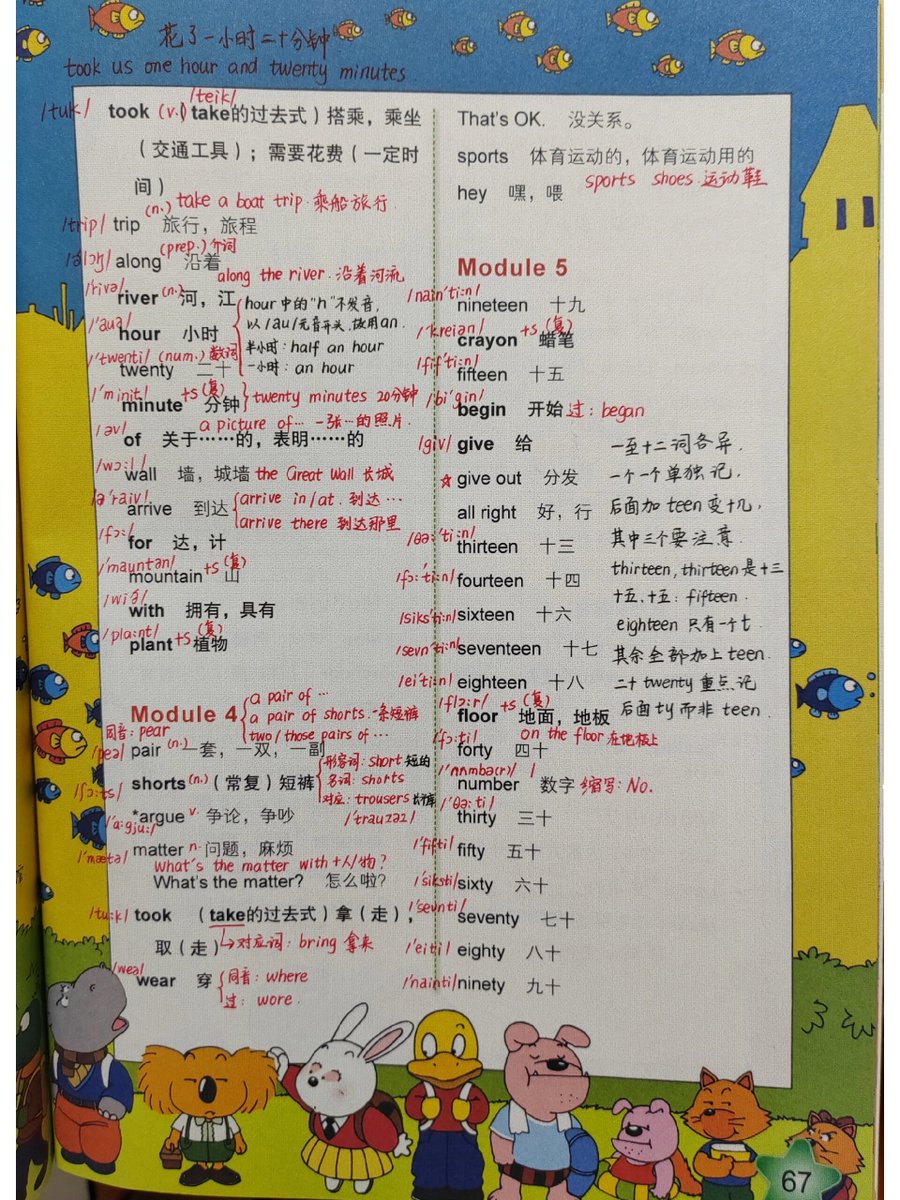 花了一小时二十分钟
took us one hour and twenty minutes
/tuk/ took (v.) (take的过去式) 搭乘，乘坐
/teik/
（交通工具）；需要花费（一定时
间）
take a boat trip. 乘船旅行
/trip/ trip (n.) 旅行，旅程
along (prep.) 介词 沿着
along the river. 沿着河流
/'rivə/ river (n.) 河，江
/'auə/ hour 小时
hour中的"h"不发音，
以/au/元音开头，故用an.
半小时：half an hour
一小时：an hour
/'twenti/ (num.) 数词
twenty 二十
/'minit/ +s(复)
minute 分钟 twenty minutes 20分钟
a picture of… 一张…的照片.
/əv/ of 关于……的，表明……的
/wɔ:l/ wall 墙，城墙 the Great Wall 长城
/ə'raiv/ arrive 到达
arrive in/at. 到达…
arrive there 到达那里
/fɔ:/ for 达，计
/'mauntən/ +s(复)
mountain 山
/wið/ with 拥有，具有
/pla:nt/ +s(复)
plant 植物
Module 4
a pair of …
a pair of shorts. 一条短裤
two/those pairs of …
同音：pear
/peə/ pair (n.) 一套，一双，一副
/ʃɔ:ts/ shorts (n.) （常复）短裤
形容词：short 短的
名词：shorts
对应：trousers 长裤
/'trauzəz/
/'a:gju:/ *argue v. 争论，争吵
/'mætə/ matter n. 问题，麻烦
What's the matter with +人/物？
What's the matter? 怎么啦？
/tu:k/ took （take的过去式）拿（走），
取（走） 对应词：bring 拿来
/weə/ wear 穿
同音：where
过：wore.
That's OK. 没关系。
sports 体育运动的，体育运动用的
sports shoes 运动鞋
hey 嘿，喂
Module 5
/nain'ti:n/
nineteen 十九
/'kreiən/ +s(复)
crayon 蜡笔
/fif'ti:n/
fifteen 十五
/bi'gin/
begin 开始 过：began
/giv/ give 给
☆ give out 分发
all right 好，行
/θə:'ti:n/
thirteen 十三
/fɔ:'ti:n/ fourteen 十四
/siks'ti:n/ sixteen 十六
/sevn'ti:n/ seventeen 十七
/ei'ti:n/ eighteen 十八
一至十二词各异，
一个一个单独记，
后面加teen变十几，
其中三个要注意.
thirteen, thirteen是十三
十五，十五：fifteen.
eighteen 只有一个t.
其余全部加上teen.
二十twenty重点记
后面ty而非teen.
/flɔ:r/ +s(复)
floor 地面，地板
on the floor 在地板上
/'fɔ:ti/
forty 四十
/'nʌmbə(r)/
number 数字 缩写：No.
/'θə:ti/
thirty 三十
/'fifti/ fifty 五十
/'siksti/ sixty 六十
/'sevnti/ seventy 七十
/'eiti/ eighty 八十
/'nainti/ ninety 九十
67